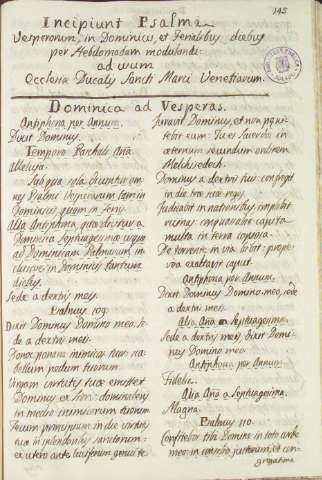 145
Incipiunt Psalmi
Vesperorum, in Dominicis, et Ferialibus diebus
per Hebdomadam modulandi:
ad usum
Ecclesiæ Ducalis Sancti Marci Venetiarum.
Dominica ad Vesperas.
Antiphona per Annum.
Dixit Dominus.
Tempore Paschali Aña.
Alleluja.
Sub qua sola dicuntur om-
nes Psalmi Vesperarum tam in
Dominicis, quam in Feriis.
Alia Antiphona, quæ
Dominica Septuagesimæ usque
ad Dominicam Palmarum, in-
clusive in Dominicis tantum
diebus.
Sede a dextris meis.
Psalmus 109.
Dixit Dominus Domino meo: se-
de a dextris meis.
Donec ponam inimicos tuos sca-
bellum pedum tuorum.
Virgam virtutis tuæ emittet
Dominus ex Sion: dominabere
in medio inimicorum tuorum.
Tecum principium in die virtutis
tuæ in splendoribus sanctorum:
ex utero ante luciferum genui te.
Juravit Dominus, et non pœni-
tebit eum: Tu es sacerdos in
æternum secundum ordinem
Melchisedech.
Dominus a dextris tuis: confregit
in die iræ suæ reges.
Judicabit in nationibus, implebit
ruinas: conquassabit capita
multa in terra copiosa.
De torrente in via bibet: propte-
rea exaltavit caput.
Antiphona per Annum.
Dixit Dominus Domino meo, sede
a dextris meis.
Alia Aña a Septuagesima.
Sede a dextris meis, dixit Domi-
nus Domino meo.
Antiphona per Annum.
Fidelia.
Alia Aña a Septuagesima.
Magna.
Psalmus 110.
Confitebor tibi Domine in toto corde
meo: in consilio justorum, et con-
gregatione